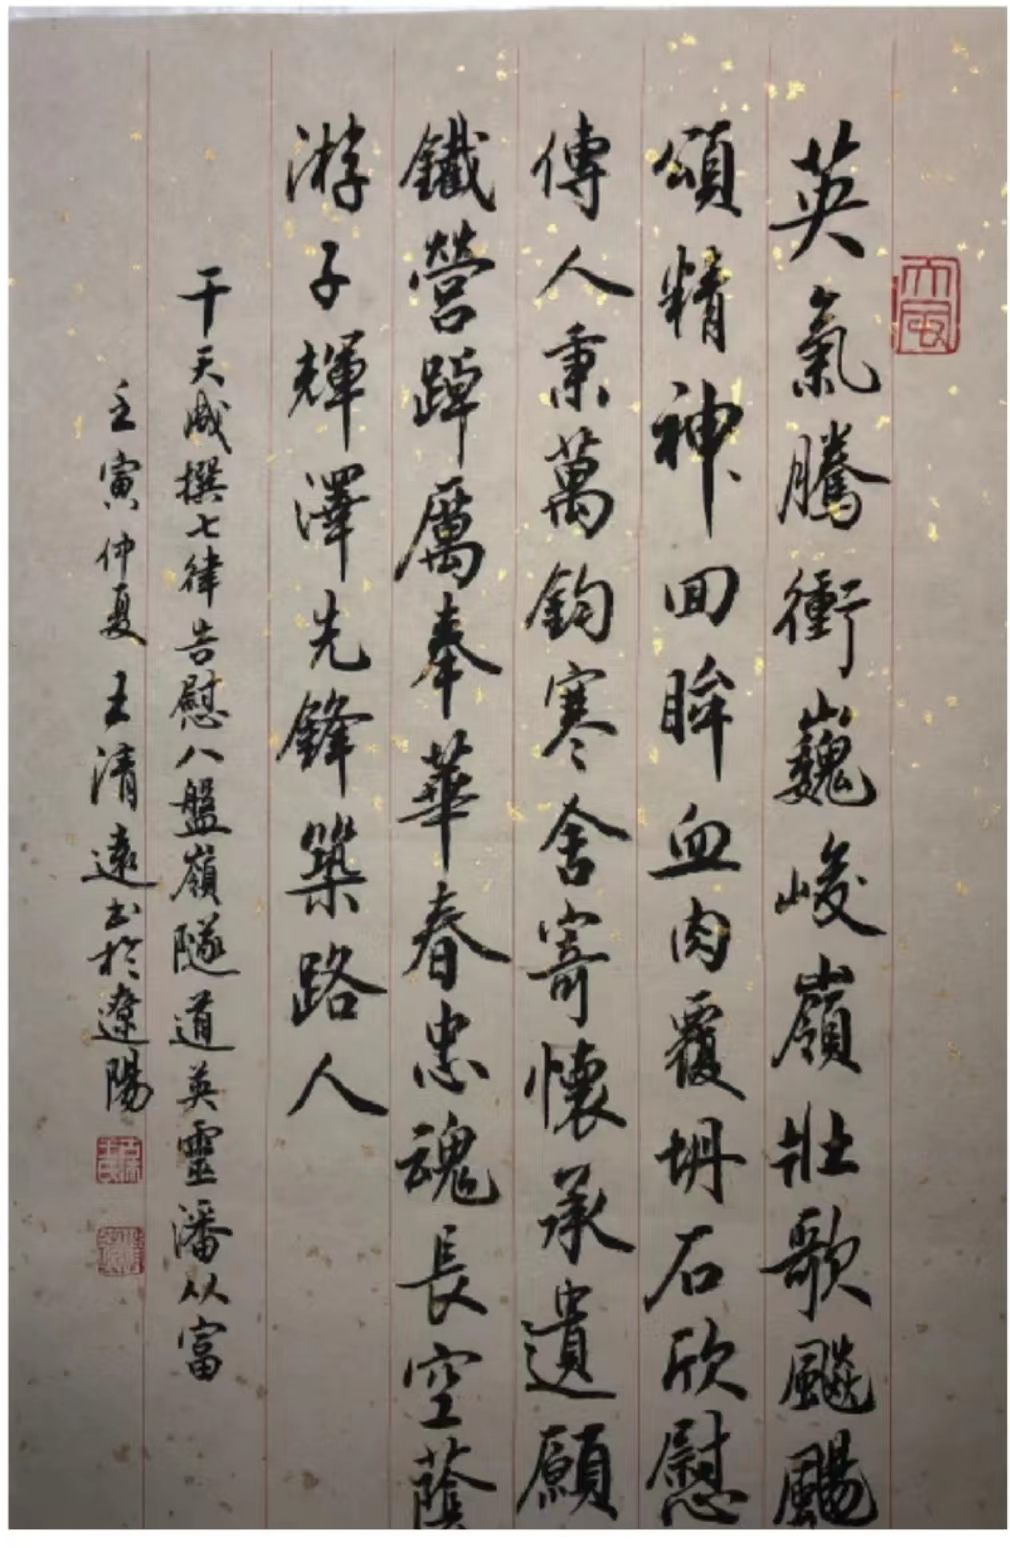 英氣騰衝巍峻嶺壯歌飈颺
頌精神回眸血肉覆坍石欣慰
傳人秉萬鈞寒舍寄懷承遺願
鐵營踔厲奉華春忠魂長空蔭
游子輝澤先鋒築路人
干天咸撰七律告慰八盤嶺隧道英靈潘从富
壬寅仲夏王清遠書於遼陽
大風